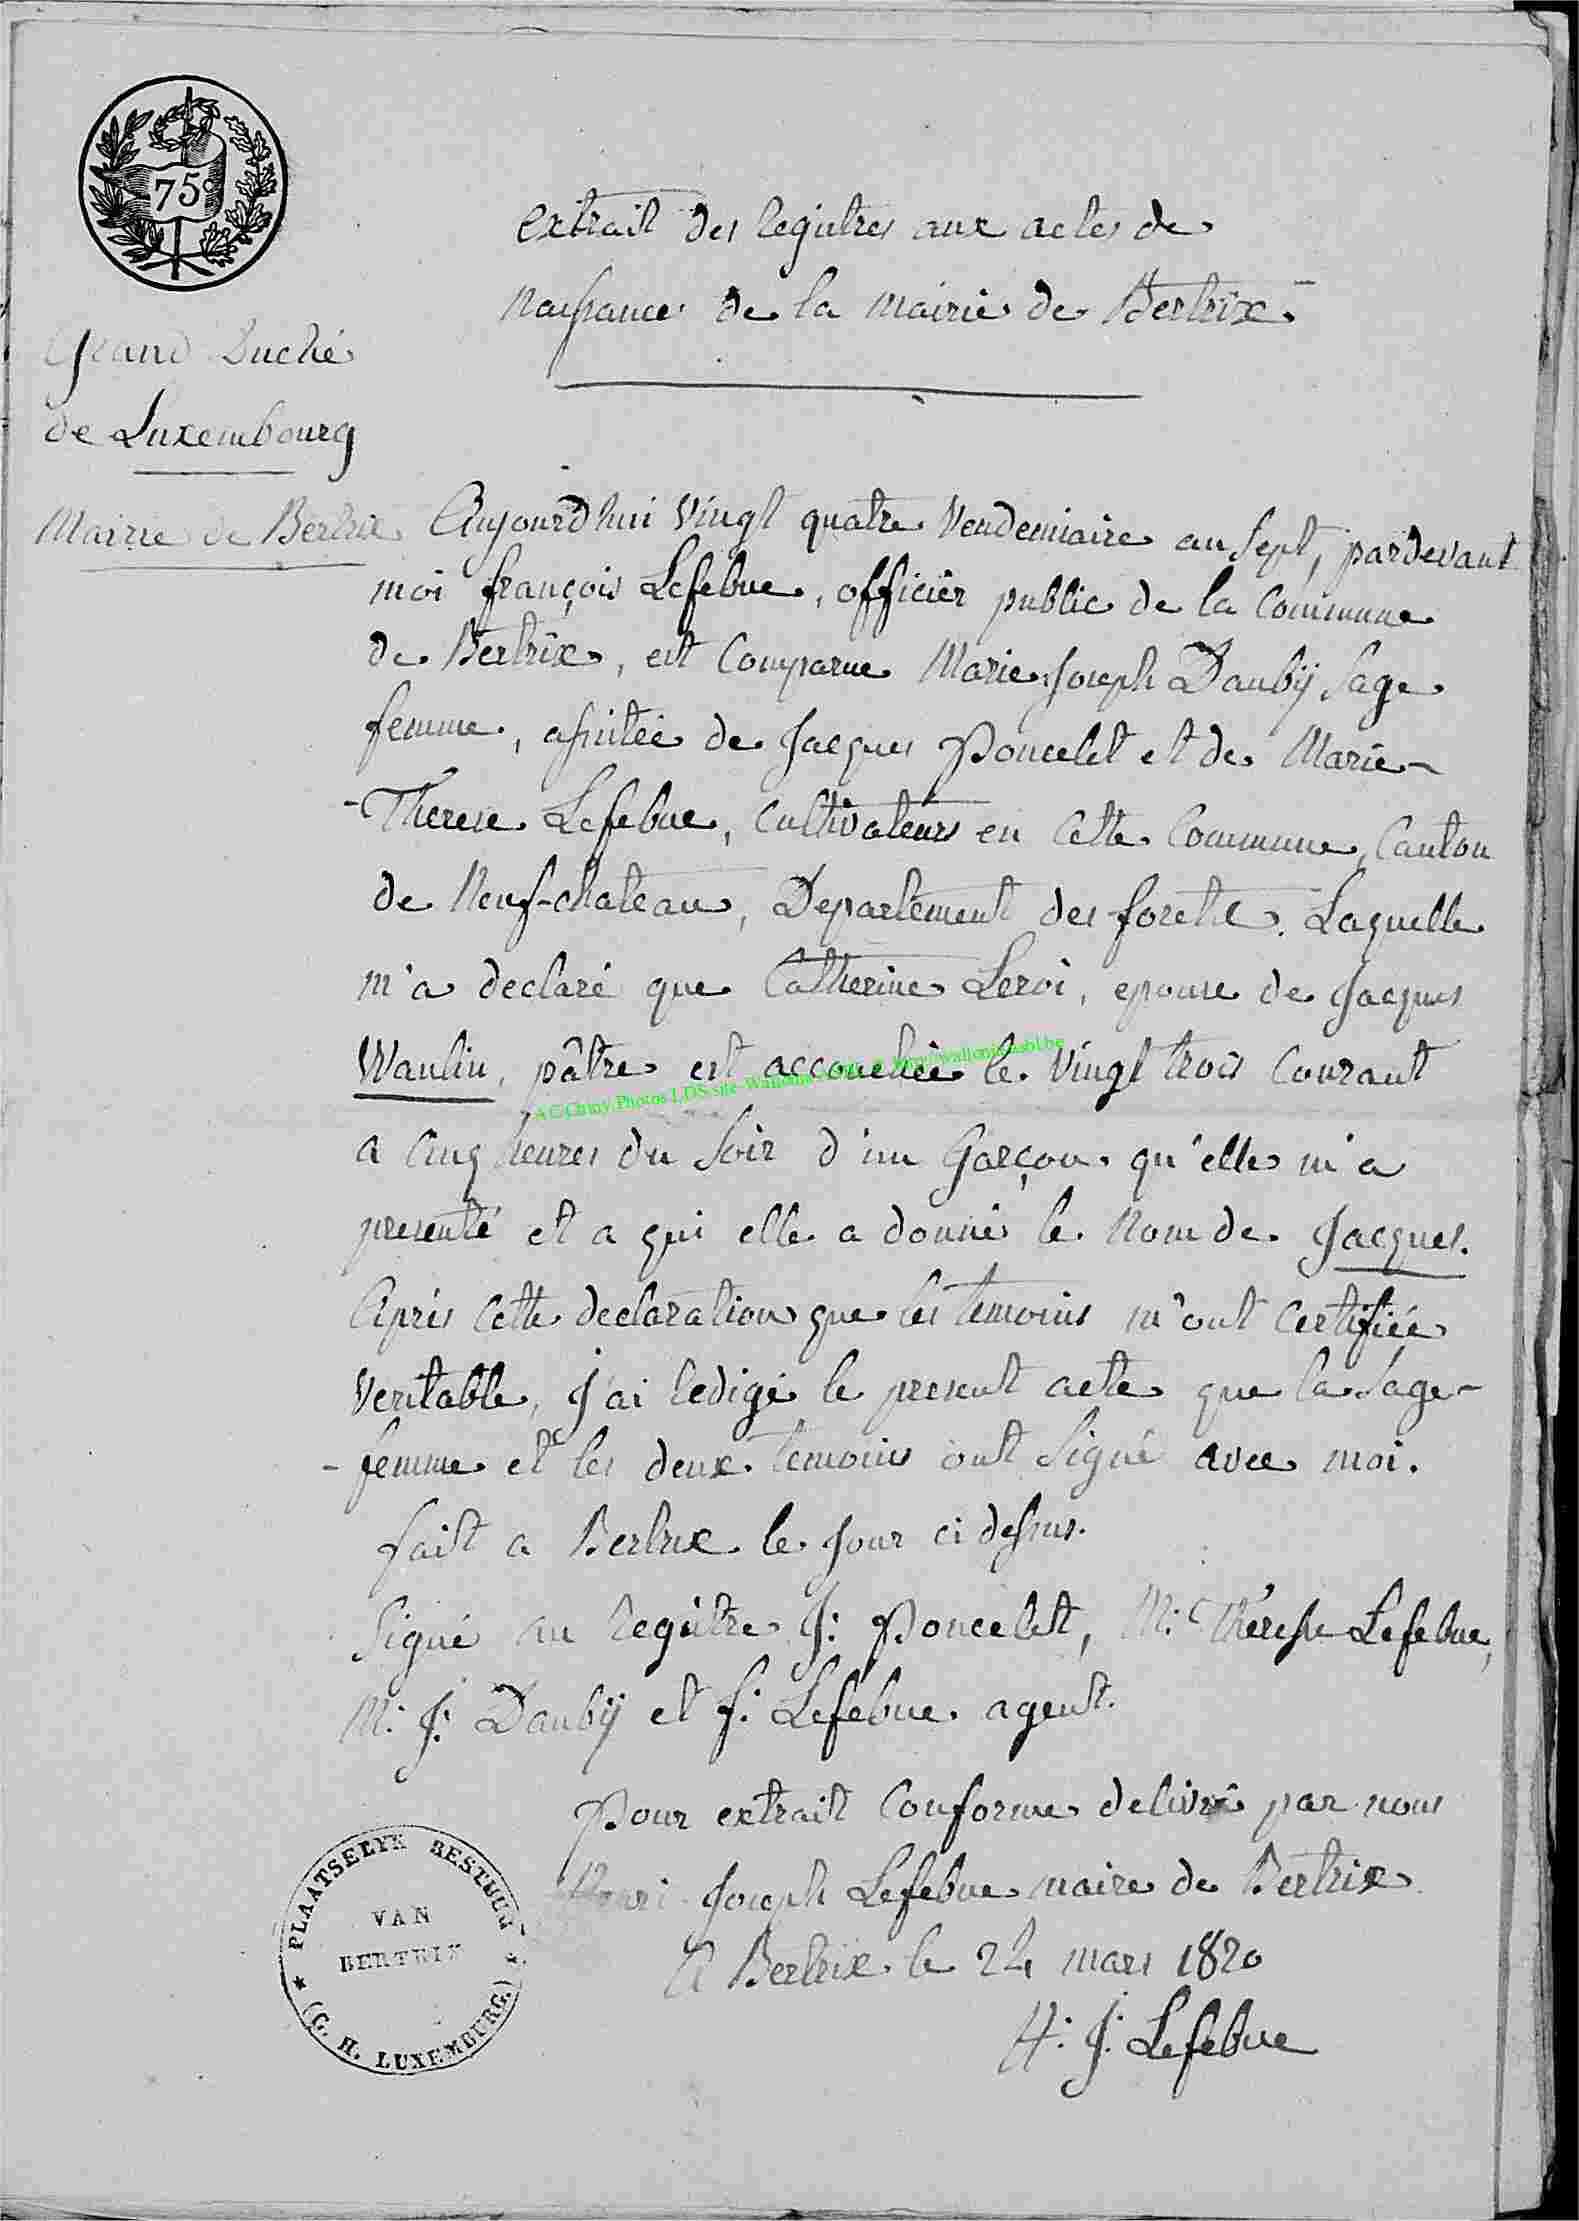 75c
extrait des registres aux actes de
naissance de la mairie de Bertrix
Grand Duché
de Luxembourg
Mairie de Bertrix
Aujourd'hui vingt quatre vendemiaire an sept, pardevant
moi françois Lefebve, officier public de la Commune
de Bertrix, est Comparue Marie Joseph Daubÿ Sage
femme, assistée de Jacques Poncelet et de Marie-
-Therese Lefebve, Cultivateurs en cette Commune, Canton
de Neuf-chateau, Departement des forets. Laquelle
m'a declaré que Catherine Leroi, epouse de Jacques
Waulin, pâtre est accouchée le vingt trois Courant
a Cinq heures du Soir d'un Garçon qu'elle m'a
presenté et a qui elle a donné le nom de Jacques.
Après cette declaration que les temoins m'ont certifiée
veritable, J'ai redigé le present acte que la Sage-
-femme et les deux temoins ont Signé avec moi.
fait a Bertrix le Jour ci dessus.
Signé au registre J: Poncelet, M: Thérese Lefebve,
M: J: Daubÿ et f: Lefebve agent.
Pour extrait Conforme delivré par nous
Henri Joseph Lefebve maire de Bertrix
A Bertrix le 24 mars 1820
H: J: Lefebve
PLAATSELYK BESTUUR
VAN
BERTRIX
(G. H. LUXEMBURG.)